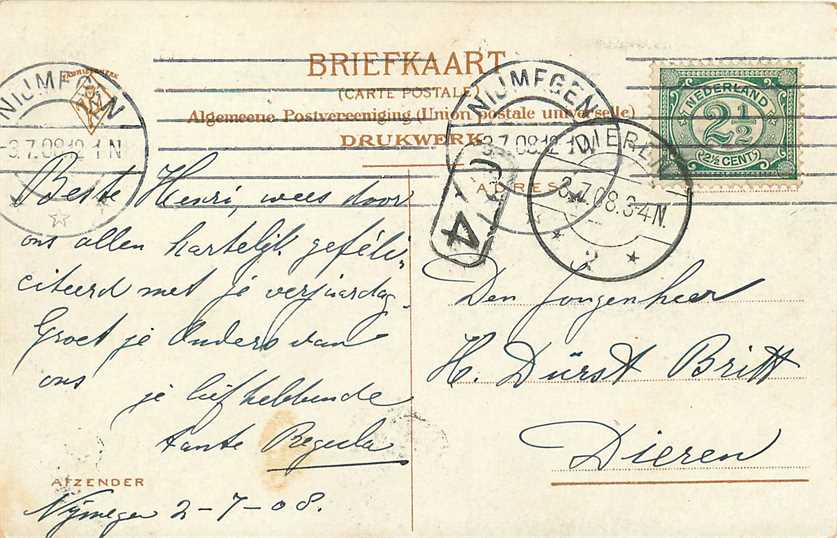 BRIEFKAART
(CARTE POSTALE)
Algemeene Postvereeniging (Union postale universelle)
DRUKWERK
NIJMEGEN
3.7.08.12-1N
NIJMEGEN
3.7.08.12-1
DIEREN
3.7.08.3-4N.
3
4
NEDERLAND
2½
(2½ CENT)
ADRES
Beste Henri, wees door
ons allen hartelijk geféli-
citeerd met je verjaardag.
Groet je Ouders van
ons je liefhebbende
tante Regula
AFZENDER
Nijmegen 2-7-08.
Den Jongenheer
H. Dürst Britt
Dieren